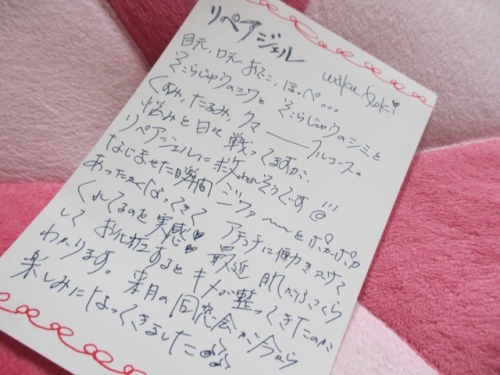 リペアジェル
waku.
目元、口元、おでこ、ほっぺ...
そこらじゅうのシワと そこらじゅうのシミと
くすみ、たるみ、クマ ── フルコースの
悩みと日々戦ってますが、
リペアジェルに救われそうです!!!
なじませた瞬間 ジワァ〜〜とポカポカ
あったかくなってきて アチコチに働きかけて
くれてるのを実感♥ 最近 肌がふっくら
して お化粧するとキメが整ってきたのが
わかります。来月の同窓会が今から
楽しみになってきました